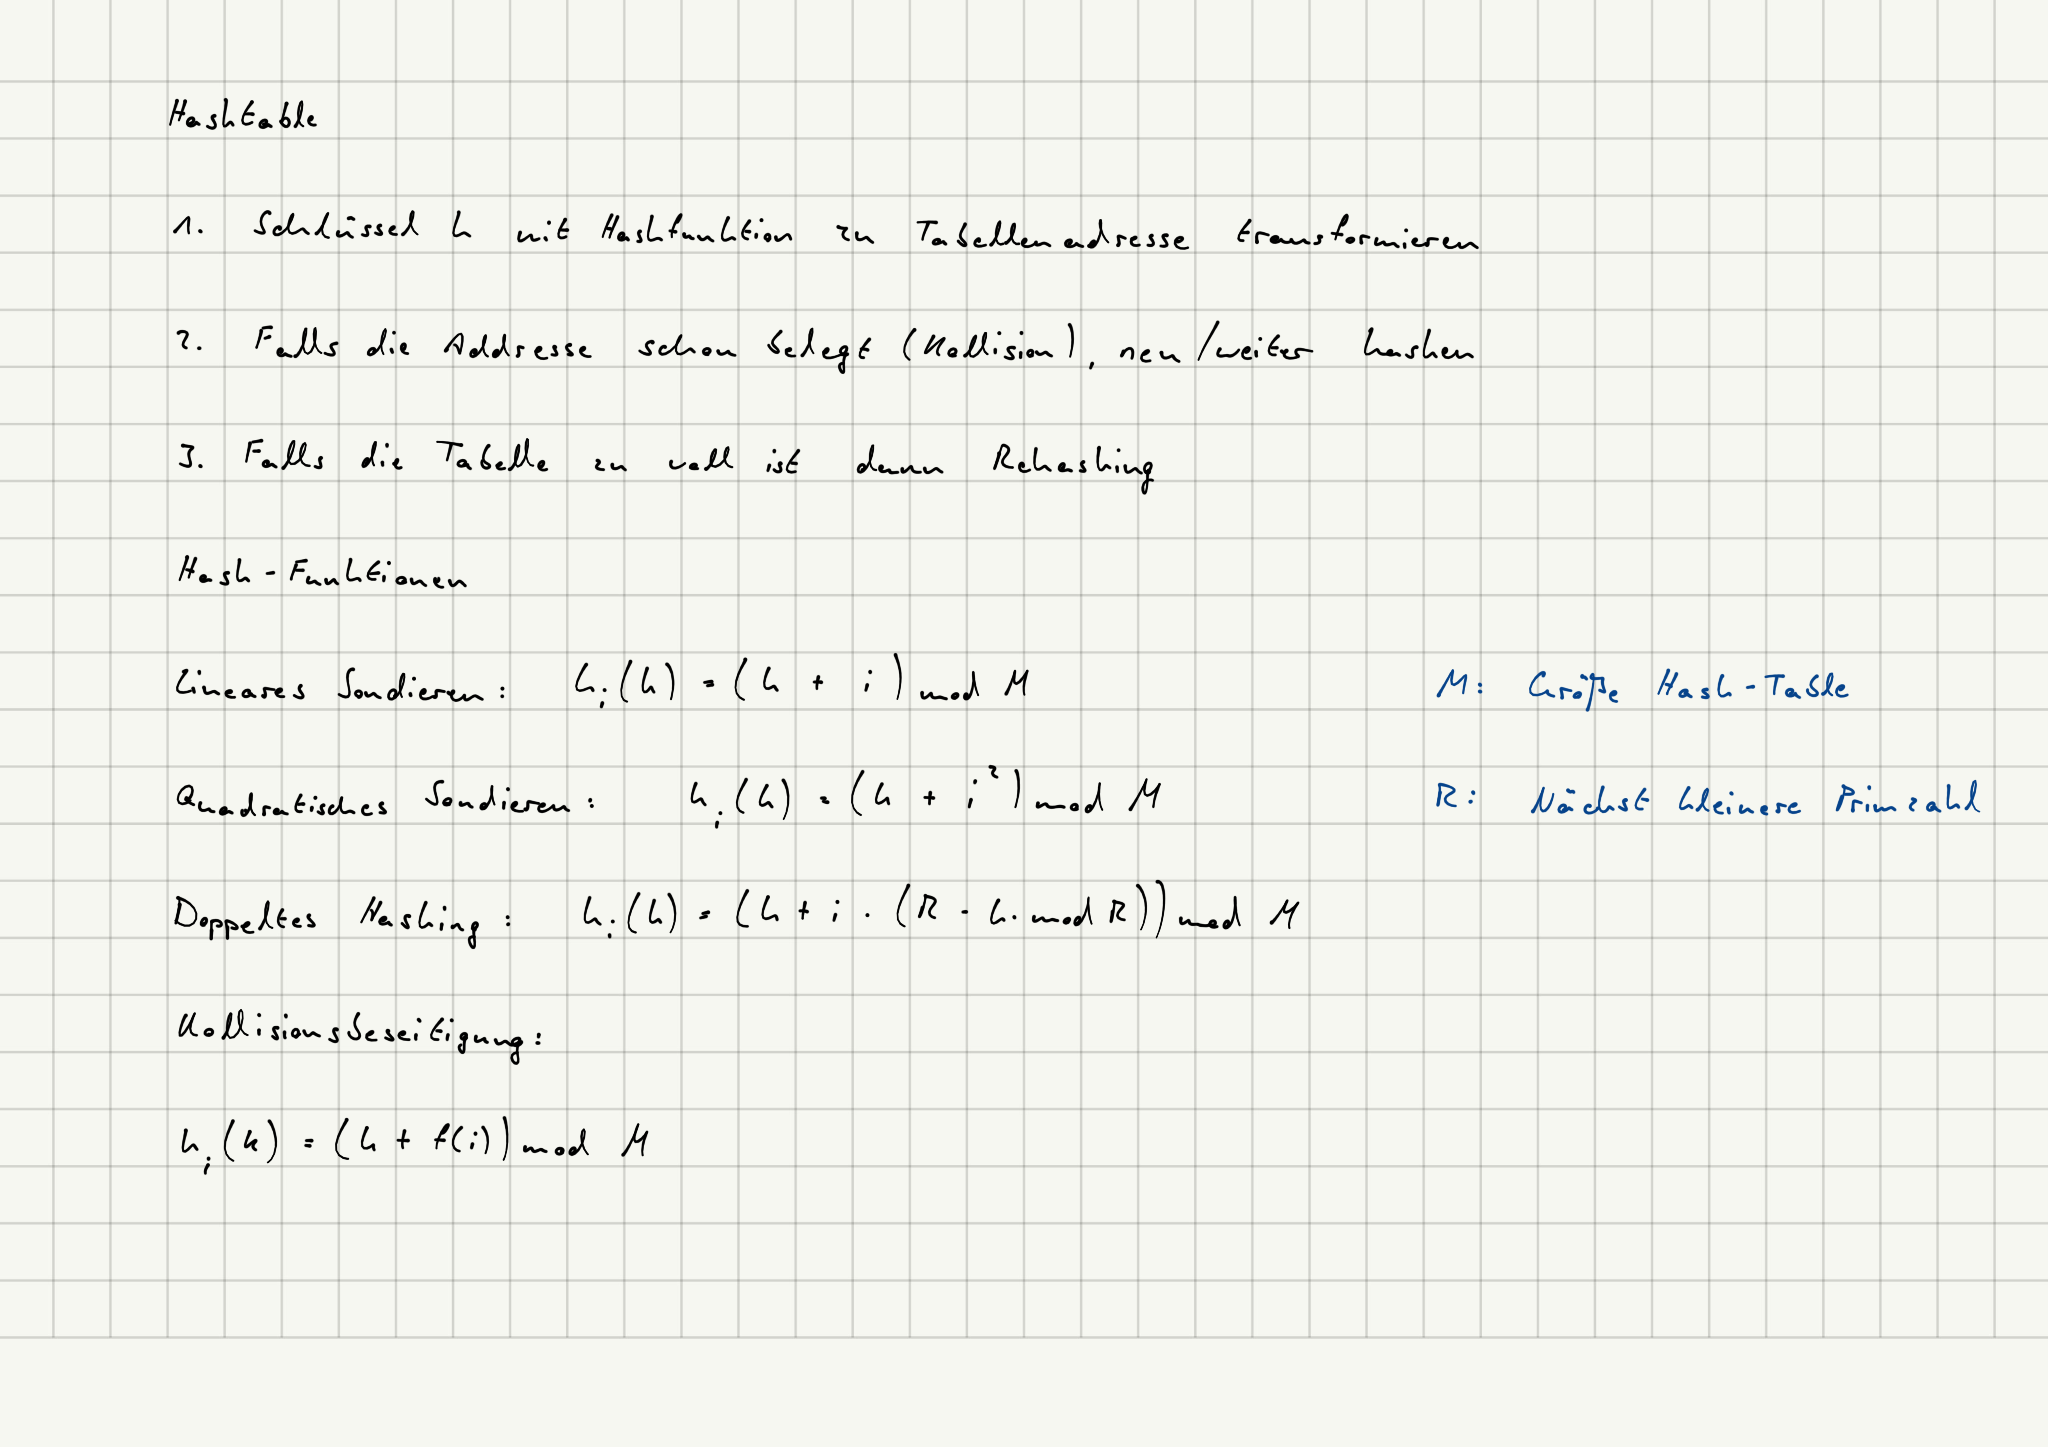 Hashtable
1. Schlüssel k mit Hashfunktion zu Tabellenadresse transformieren
2. Falls die Addresse schon belegt (Kollision), neu/weiter hashen
3. Falls die Tabelle zu voll ist dann Rehashing
Hash-Funktionen
Lineares Sondieren: hᵢ(k) = (k + i) mod M M: Größe Hash-Table
Quadratisches Sondieren: hᵢ(k) = (k + i²) mod M R: Nächst kleinere Primzahl
Doppeltes Hashing: hᵢ(k) = (k + i · (R - k · mod R)) mod M
Kollisionsbeseitigung:
hᵢ(k) = (k + f(i)) mod M